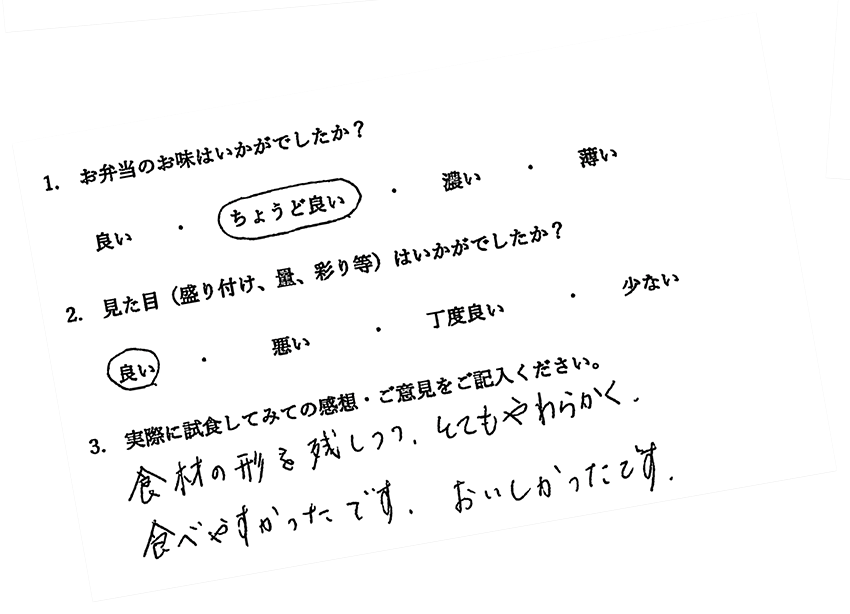 1. お弁当のお味はいかがでしたか？
良い ・ ちょうど良い ・ 濃い ・ 薄い
2. 見た目（盛り付け、量、彩り等）はいかがでしたか？
良い ・ 悪い ・ 丁度良い ・ 少ない
3. 実際に試食してみての感想・ご意見をご記入ください。
食材の形を残しつつ、とてもやわらかく、
食べやすかったです。 おいしかったです。